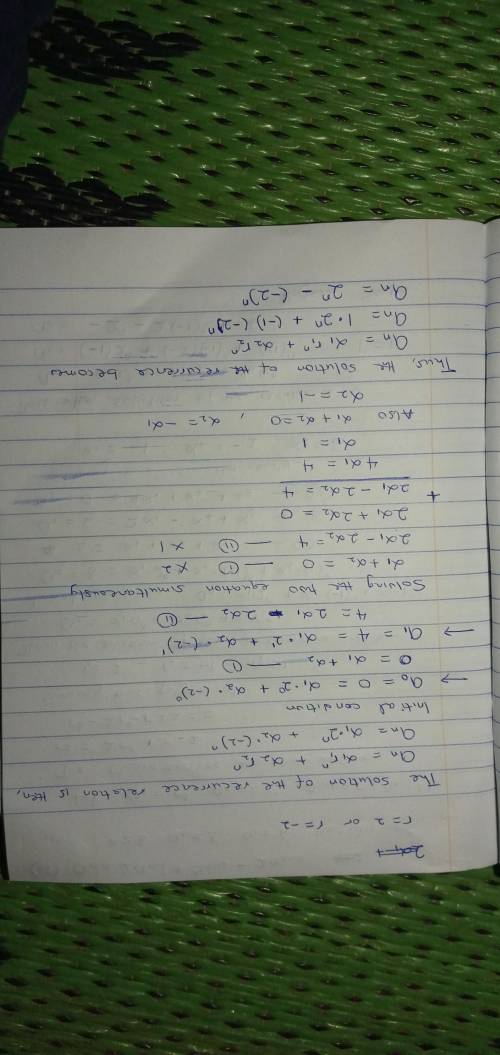 r = 2 or r = -2
The solution of the recurrence relation is then,
an = α₁r₁ⁿ + α₂r₂ⁿ
an = α₁·2ⁿ + α₂·(-2)ⁿ
Initial condition
→ a₀ = 0 = α₁·2⁰ + α₂·(-2)⁰
0 = α₁+α₂ — (i)
→ a₁ = 4 = α₁·2¹ + α₂·(-2)¹)
4 = 2α₁ - 2α₂ — (ii)
Solving the two equation simultaneously
α₁+α₂ = 0 — (i) ×2
2α₁-2α₂ = 4 — (ii) ×1
2α₁ + 2α₂ = 0
+ 2α₁ - 2α₂ = 4
4α₁ = 4
α₁ = 1
Also α₁+α₂=0 , α₂ = -α₁
α₂ = -1
Thus, the solution of the recurrence becomes
an = α₁r₁ⁿ + α₂r₂ⁿ
an = 1·2ⁿ + (-1)(-2)ⁿ
an = 2ⁿ - (-2)ⁿ